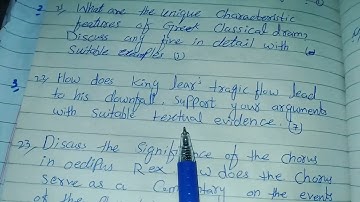 21, What are the unique Characteristic
features of Greek Classical drama,
Discuss any five in detail with
Suitable examples
3 22, How does king Lear's tragic flow lead
to his downfall, support your arguments
with suitable textual evidence. (7)
23, Discuss the Significance of the chorus
in oedipus Rex How does the Chorus
serve as a Commentary on the events
of the